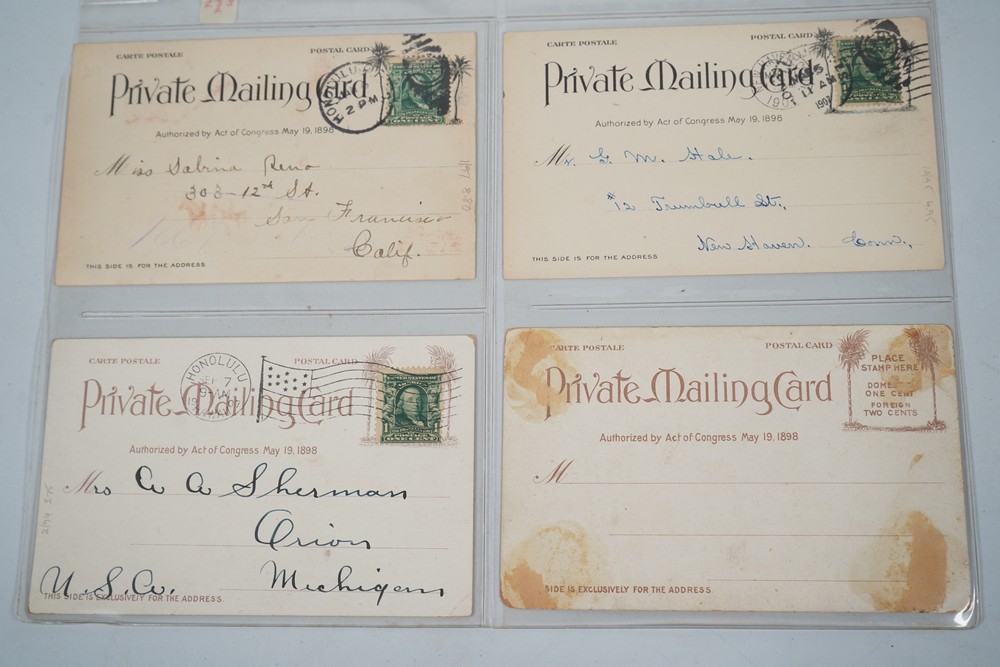 CARTE POSTALE POSTAL CARD
Private Mailing Card
HONOLULU
2 PM
Authorized by Act of Congress May 19, 1898
Miss Sabina Reno
303-12th St.
San Francisco
Calif.
THIS SIDE IS FOR THE ADDRESS
CARTE POSTALE POSTAL CARD
Private Mailing Card
11 AM
Authorized by Act of Congress May 19, 1898
Mr. G. M. Hale.
#12 Trumbull St.,
New Haven. Conn.,
THIS SIDE IS FOR THE ADDRESS
CARTE POSTALE POSTAL CARD
Private Mailing Card
HONOLULU
7
ONE CENT
Authorized by Act of Congress May 19, 1898
Mrs A A Sherman
Orion
Michigan
U.S.A.
THIS SIDE IS EXCLUSIVELY FOR THE ADDRESS
CARTE POSTALE POSTAL CARD
Private Mailing Card
PLACE
STAMP HERE
ONE CENT
FOREIGN
TWO CENTS
Authorized by Act of Congress May 19, 1898
M
SIDE IS EXCLUSIVELY FOR THE ADDRESS